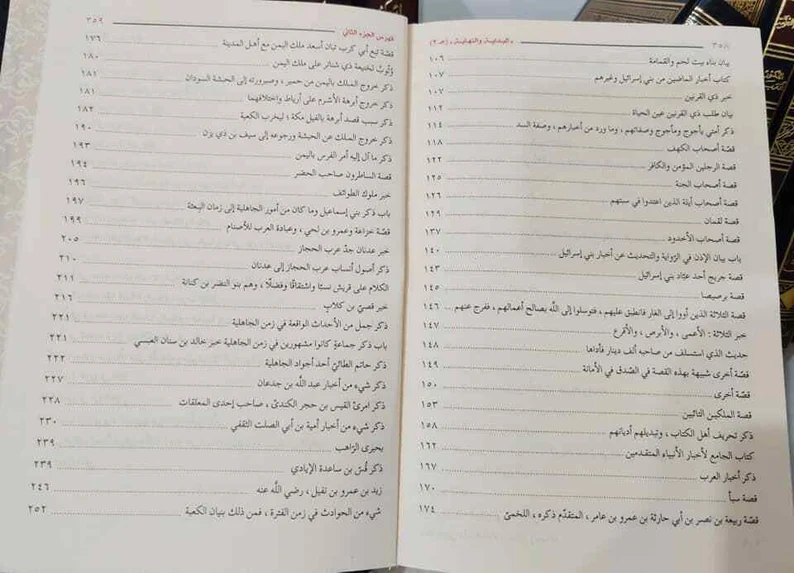 ٣٥٨ « البداية والنهاية » (جـ ٢)
بيان بناء بيت لحم والقمامة ١٠٦
كتاب أخبار الماضين من بني إسرائيل وغيرهم ١٠٧
خبر ذي القرنين ١٠٧
بيان طلب ذي القرنين عين الحياة ١١٢
ذكر أمتي يأجوج ومأجوج وصفاتهم ، وما ورد من أخبارهم ، وصفة السد ١١٤
قصّة أصحاب الكهف ١١٨
قصة الرجلين المؤمن والكافر ١٢٢
قصة أصحاب الجنة ١٢٥
قصة أصحاب أيلة الذين اعتدوا في سبتهم ١٢٦
قصة لقمان ١٢٩
قصة أصحاب الأخدود ١٣٧
باب بيان الإذن في الرّواية والتحديث عن أخبار بني إسرائيل ١٤٠
قصة جريج أحد عبّاد بني إسرائيل ١٤٣
قصة برصيصا ١٤٥
قصة الثلاثة الذين أووا إلى الغار فانطبق عليهم ، فتوسلوا إلى اللَّه بصالح أعمالهم ، ففرج عنهم ١٤٦
خبر الثلاثة : الأعمى ، والأبرص ، والأقرع ١٤٧
حديث الذي استسلف من صاحبه ألف دينار فأداها ١٤٨
قصة أخرى شبيهة بهذه القصة في الصّدق في الأمانة ١٤٩
قصة أخرى ١٥٠
قصة الملكين التائبين ١٥٣
ذكر تحريف أهل الكتاب ، وتبديلهم أديانهم ١٥٨
كتاب الجامع لأخبار الأنبياء المتقدمين ١٦٢
ذكر أخبار العرب ١٦٧
قصة سبأ ١٧٠
قصّة ربيعة بن نصر بن أبي حارثة بن عمرو بن عامر ، المتقدّم ذكره ، اللخميّ ١٧٤
فهرس الجزء الثاني ٣٥٩
قصّة تبع أبي كرب تبان أسعد ملك اليمن مع أهل المدينة ١٧٦
وُثُوبُ لخنيعة ذي شناتر على ملك اليمن ١٨٠
ذكر خروج الملك باليمن من حمير ، وصيرورته إلى الحبشة السودان ١٨١
ذكر خروج أبرهة الأشرم على أرياط واختلافهما ١٨١
ذكر سبب قصد أبرهة بالفيل مكة ؛ ليخرب الكعبة ١٨٢
ذكر خروج الملك عن الحبشة ورجوعه إلى سيف بن ذي يزن ١٩٠
ذكر ما آل إليه أمر الفرس باليمن ١٩٣
قصة الساطرون صاحب الحضر ١٩٤
خبر ملوك الطوائف ١٩٦
باب ذكر بني إسماعيل وما كان من أمور الجاهلية إلى زمان البِعثة ١٩٧
قصّة خزاعة وعمرو بن لحي ، وعبادة العرب للأصنام ١٩٩
خبر عدنان جدّ عرب الحجاز ٢٠٥
ذكر أصول أنساب عرب الحجاز إلى عدنان ٢١٠
الكلام على قريش نسبًا واشتقاقًا وفضلًا ، وهم بنو النضر بن كنانة ٢١١
خبر قصيّ بن كلاب ٢١٦
ذكر جمل من الأحداث الواقعة في زمن الجاهلية ٢٢١
باب ذكر جماعةٍ كانوا مشهورين في زمن الجاهلية خبر خالد بن سنان العبسي ٢٢١
ذكر حاتم الطائيّ أحد أجواد الجاهلية ٢٢٢
ذكر شيء من أخبار عبد اللَّه بن جدعان ٢٢٧
ذكر امرئ القيس بن حجر الكنديّ ، صاحب إحدى المعلقات ٢٢٨
ذكر شيء من أخبار أمية بن أبي الصلت الثقفي ٢٣٠
بحيرى الرّاهب ٢٣٩
ذكر قُسّ بن ساعدة الإيادي ٢٣٩
زيد بن عمرو بن نفيل ، رضي اللَّه عنه ٢٤٦
شيء من الحوادث في زمن الفترة ، فمن ذلك بنيان الكعبة ٢٥٢